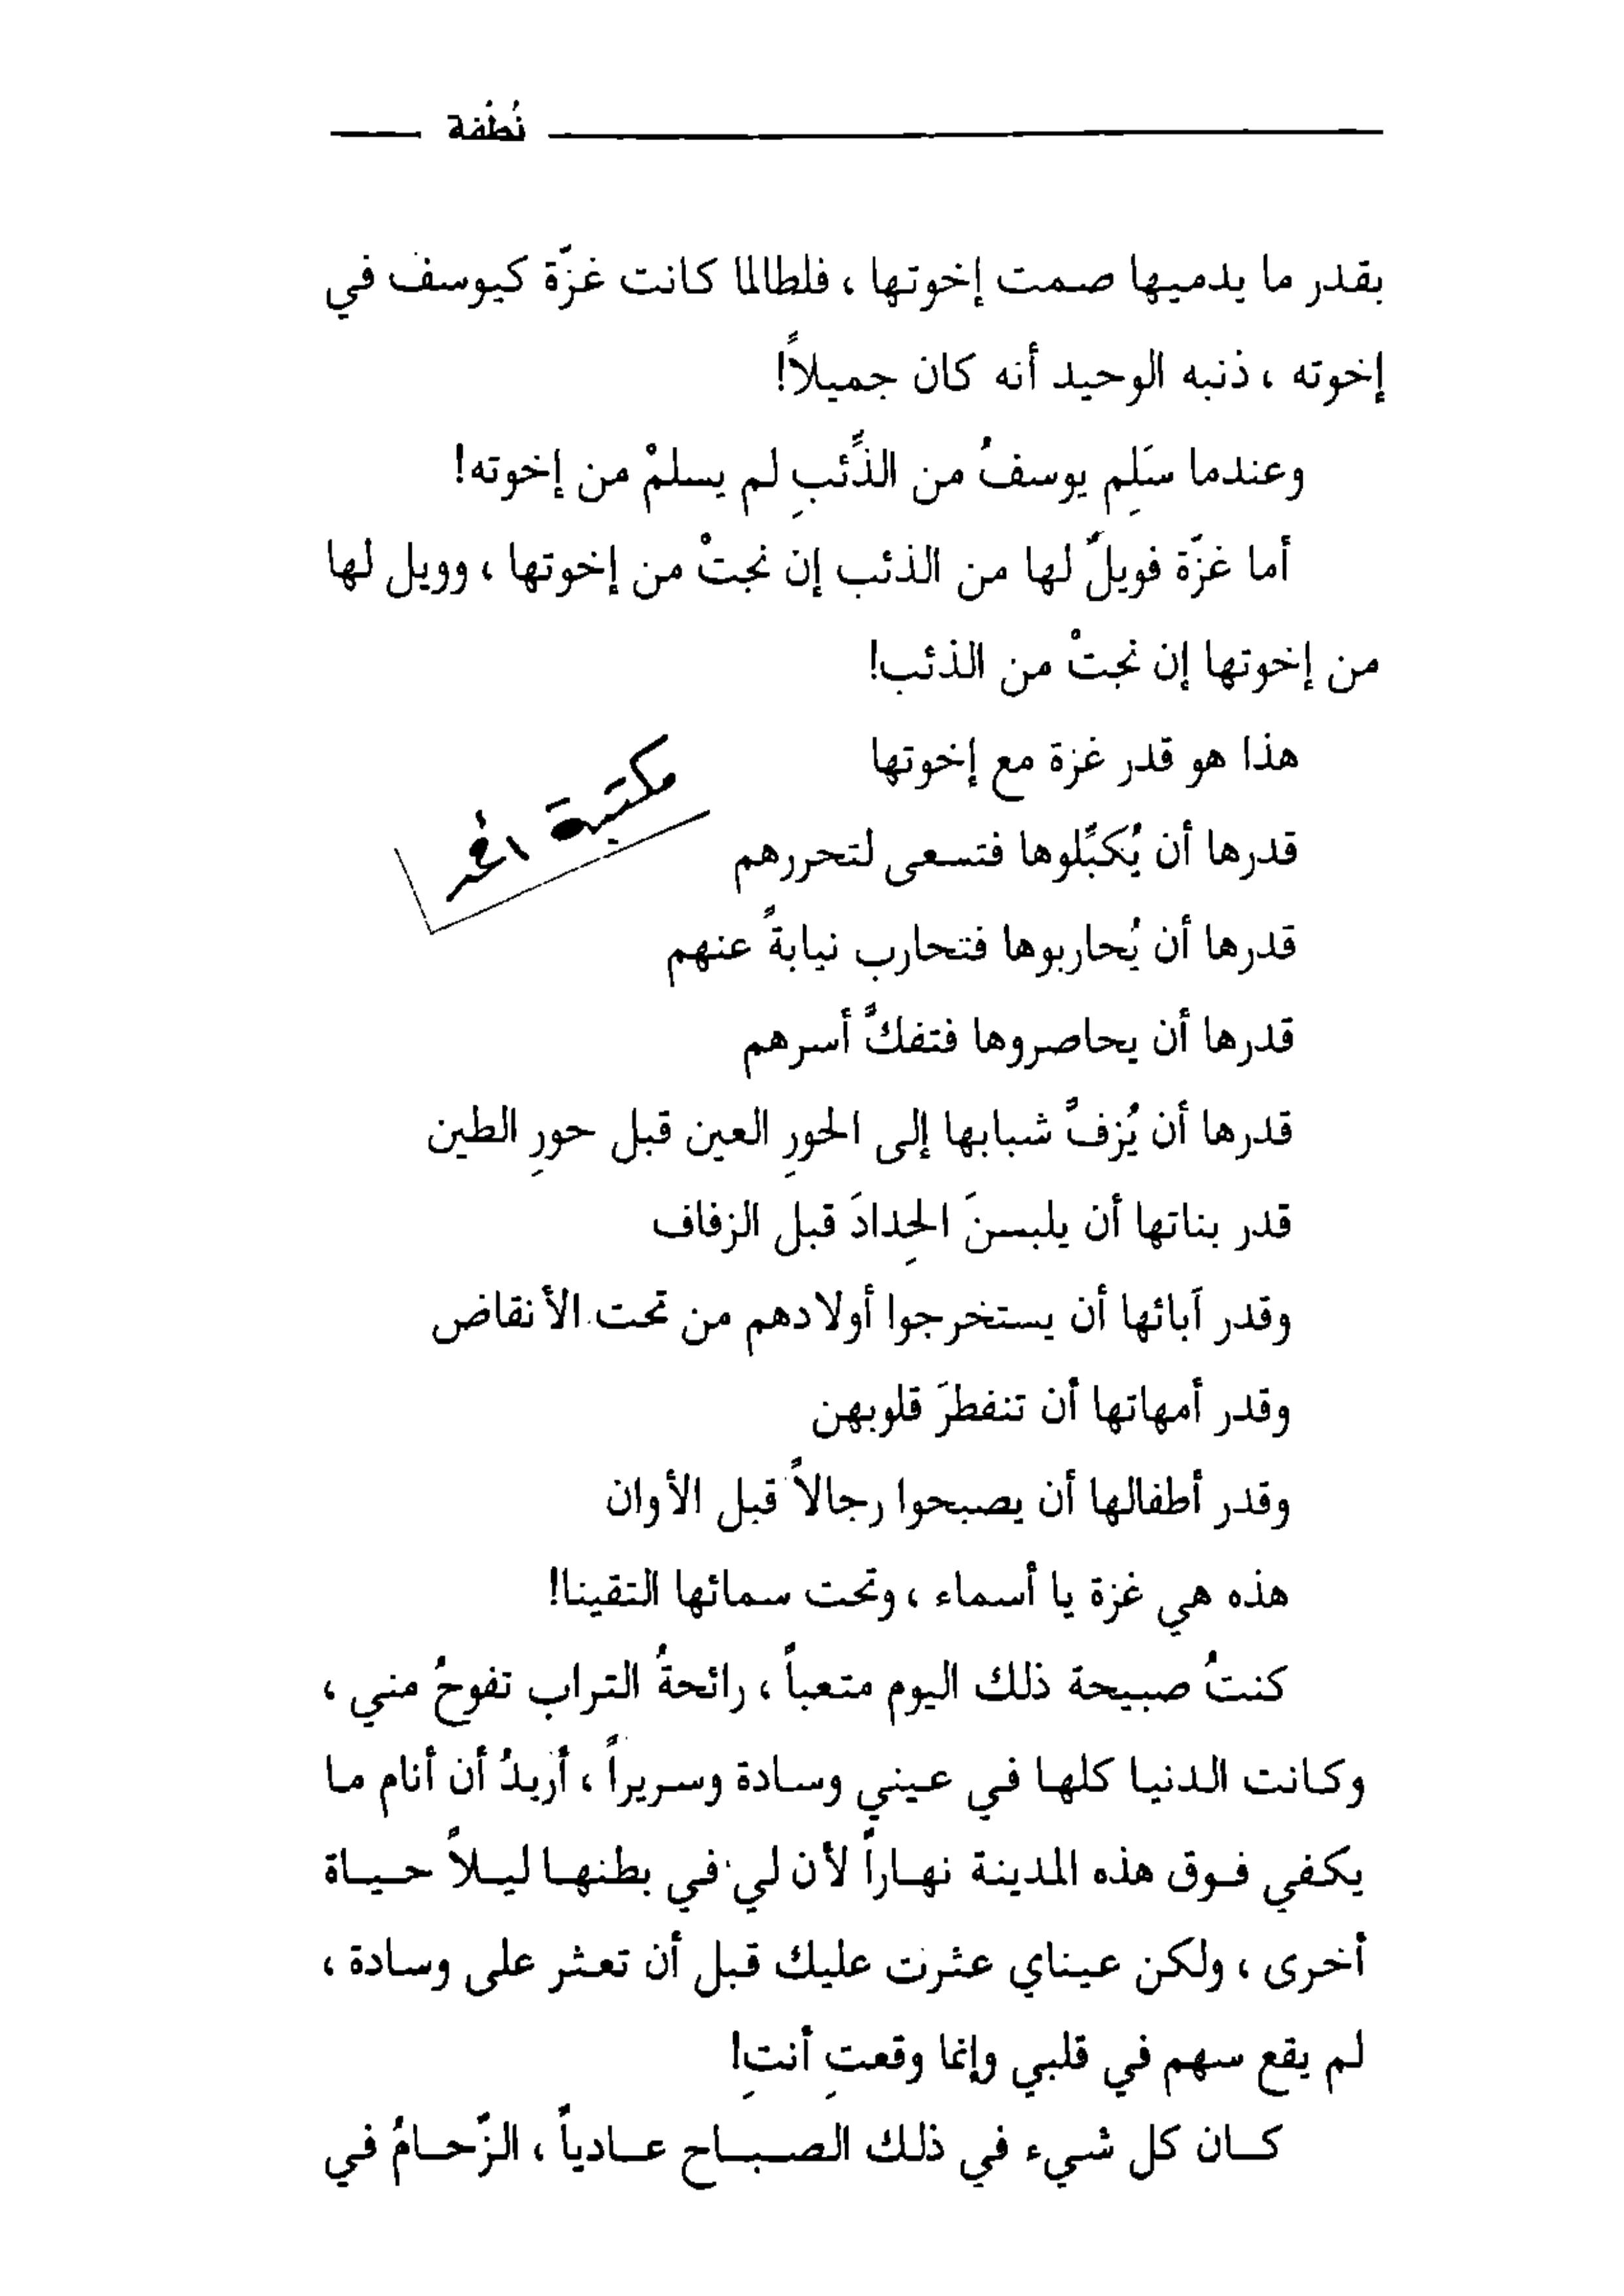 نُطْفة
بقدر ما يدميها صمت إخوتها ، فلطالما كانت غزّة كيوسف في
إخوته ، ذنبه الوحيد أنه كان جميلاً!
وعندما سَلِم يوسفُ من الذِّئبِ لم يسلمْ من إخوته!
أما غزّة فويلٌ لها من الذئب إن نجتْ من إخوتها ، وويل لها
من إخوتها إن نجتْ من الذئب!
هذا هو قدر غزة مع إخوتها
مكتبة
قدرها أن يُكبِّلوها فتسعى لتحررهم
قدرها أن يُحاربوها فتحارب نيابةً عنهم
قدرها أن يحاصروها فتفكَّ أسرهم
قدرها أن يُزفَّ شبابها إلى الحورِ العين قبل حورِ الطين
قدر بناتها أن يلبسنَ الحِدادَ قبل الزفاف
وقدر آبائها أن يستخرجوا أولادهم من تحت الأنقاض
وقدر أمهاتها أن تنفطرَ قلوبهن
وقدر أطفالها أن يصبحوا رجالاً قبل الأوان
هذه هي غزة يا أسماء ، وتحت سمائها التقينا!
كنتُ صبيحة ذلك اليوم متعباً ، رائحةُ التراب تفوحُ مني ،
وكانت الدنيا كلها في عيني وسادة وسريراً ، أريدُ أن أنام ما
يكفي فوق هذه المدينة نهاراً لأن لي في بطنها ليلاً حياة
أخرى ، ولكن عيناي عثرت عليك قبل أن تعثر على وسادة ،
لم يقع سهم في قلبي وإنما وقعتِ أنتِ!
كان كل شيء في ذلك الصباح عادياً ، الزّحامُ في